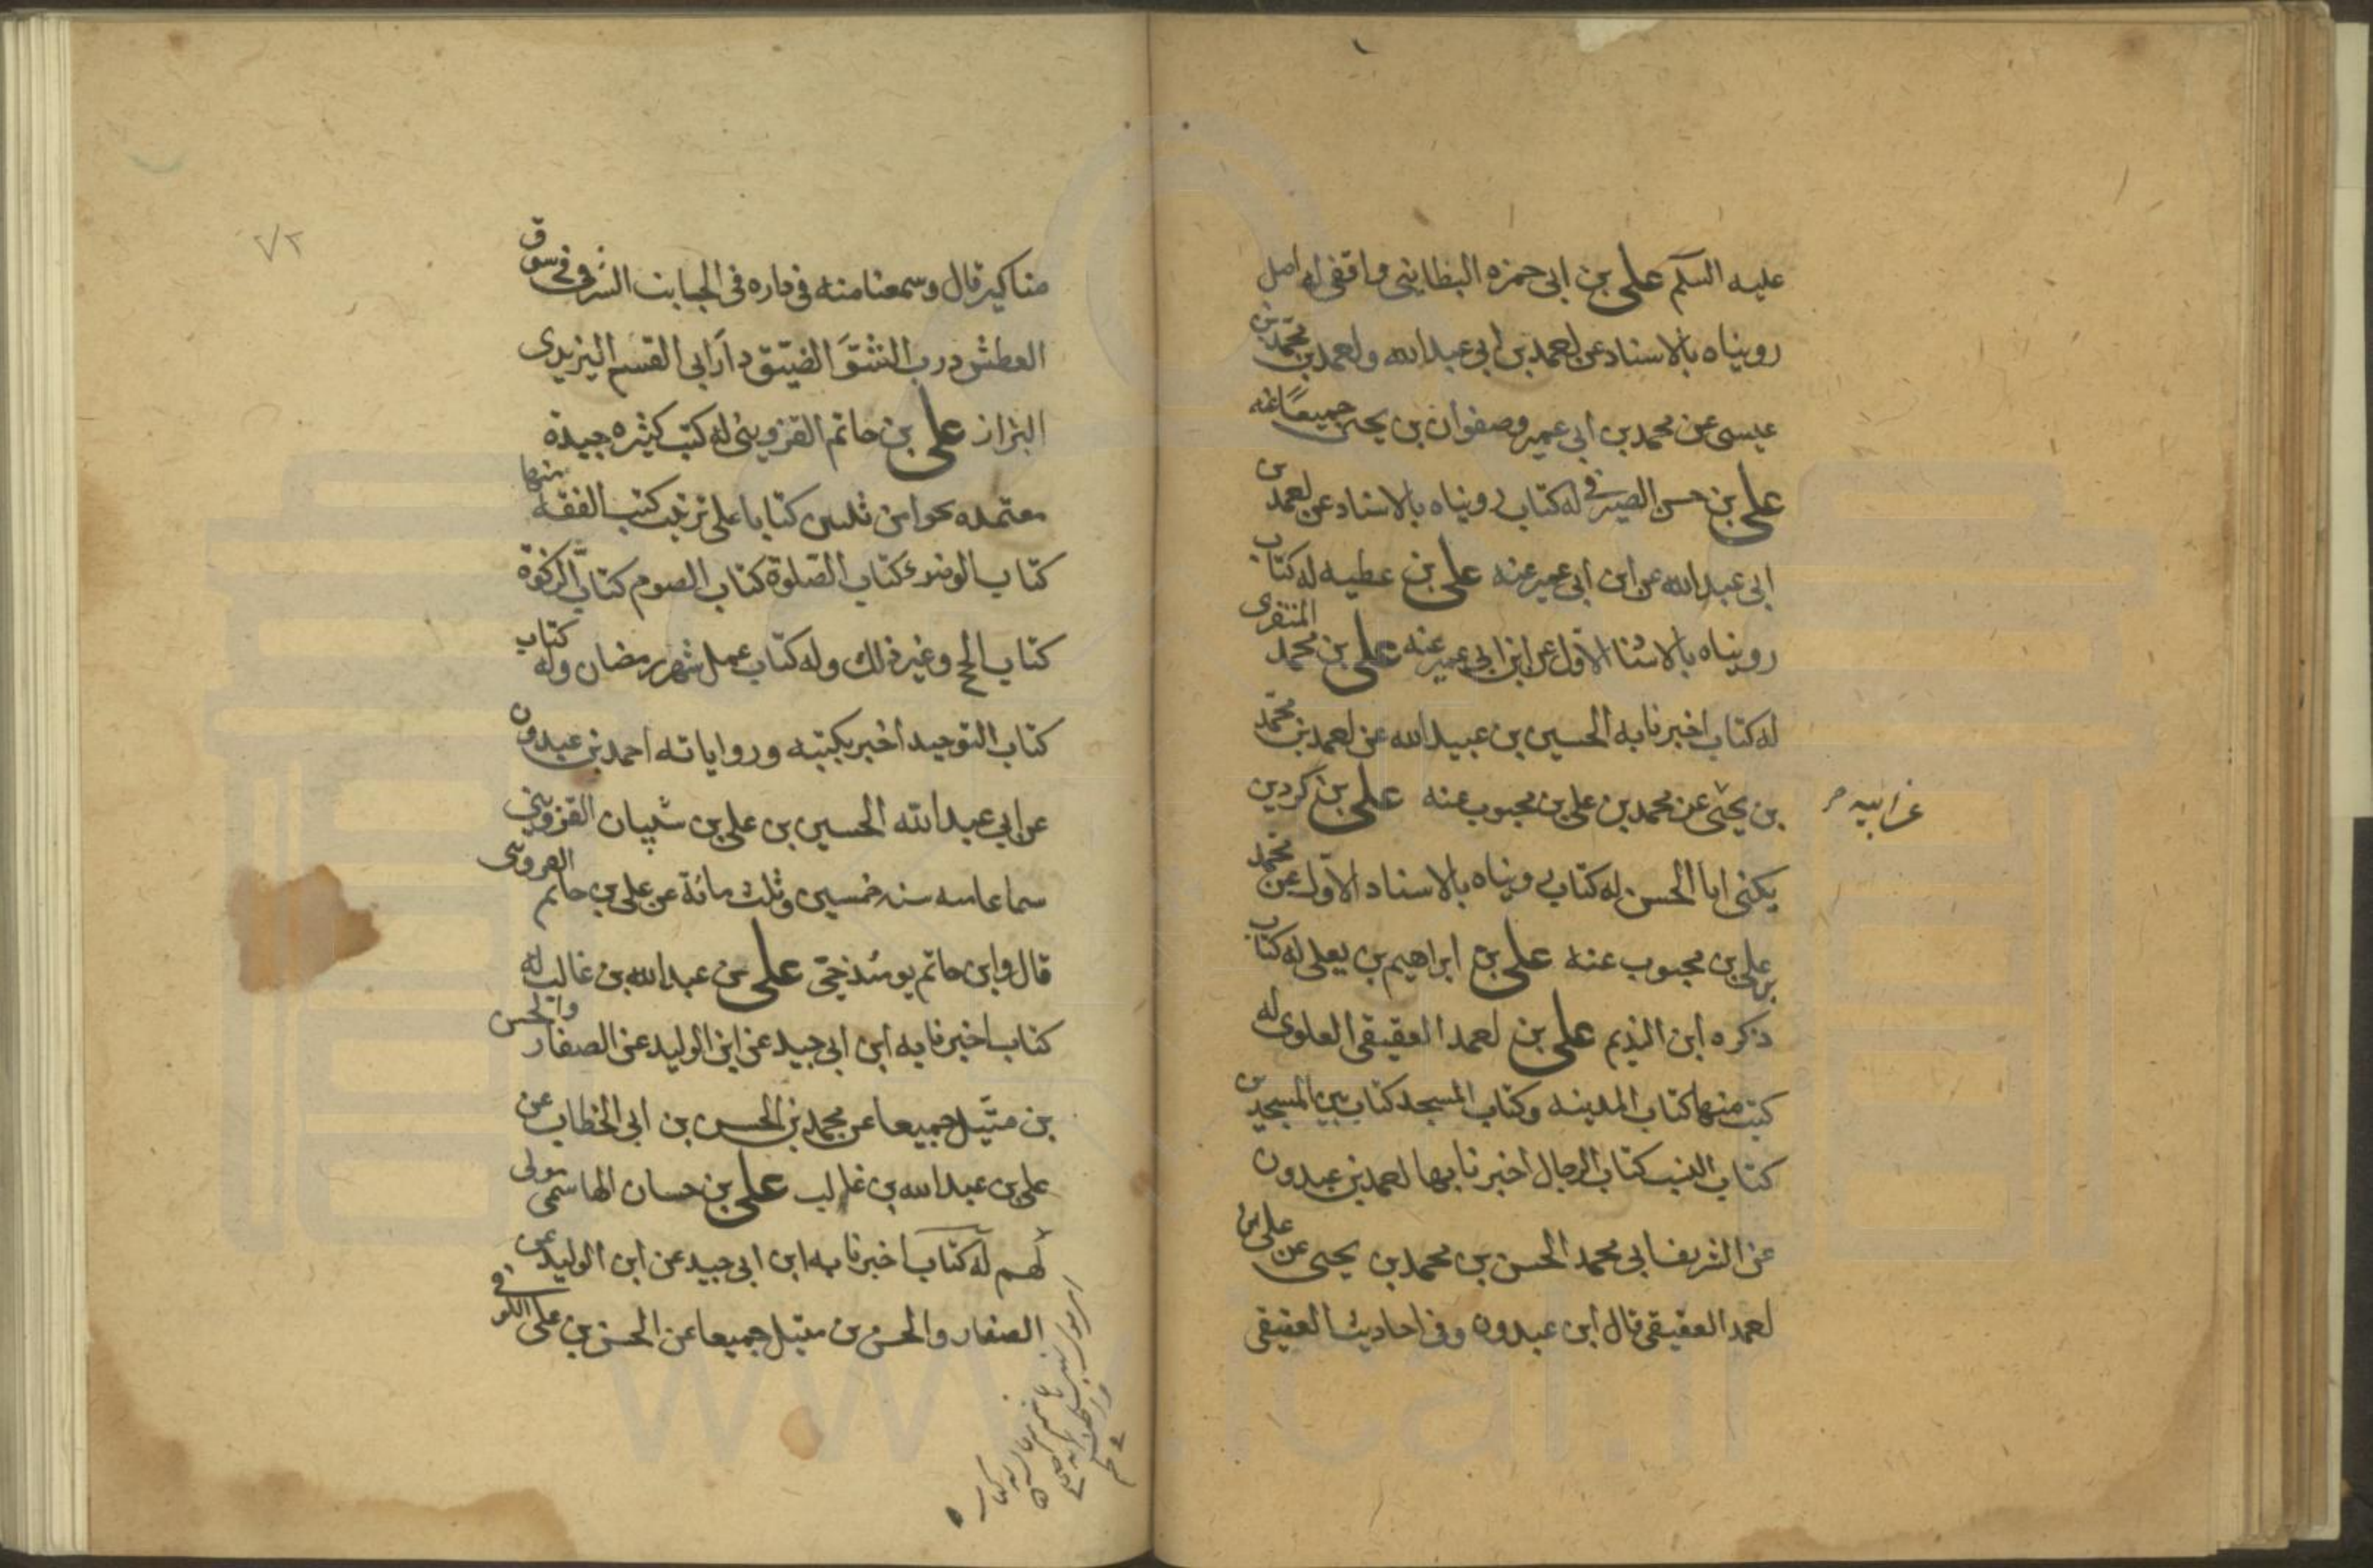 عليه السلم علي بن ابى حمزه البطاينى واقفى له اصل
رويناه بالاسناد عن احمد بن ابى عبدالله واحمد بن محمد بن
عيسى عن محمد بن ابى عمير وصفوان بن يحيى جميعًا عنه
علي بن حسن الصيرفى له كتاب رويناه بالاسناد عن احمد بن
ابى عبدالله عن ابن ابى عمير عنه علي بن عطيه له كتاب
رويناه بالاسنا الاول عن ابن ابى عمير عنه علي بن محمد المنقرى
له كتاب اخبرنا به الحسين بن عبيدالله عن احمد بن محمد
بن يحيى عن محمد بن على بن محبوب عنه علي بن كردين
عن ابيه
يكنى ابا الحسن له كتاب رويناه بالاسناد الاول عن محمد
بن على بن محبوب عنه علي بن ابراهيم بن يعلى له كتاب
ذكره ابن النديم علي بن احمد العقيقى العلوى له
كتب منها كتاب المدينه وكتاب المسجد كتاب بين المسجدين
كتاب النسب كتاب الرجال اخبرنا بها احمد بن عبدون
عن الشريف ابى محمد الحسن بن محمد بن يحيى عن على بن
احمد العقيقى قال ابن عبدون وفى احاديث العقيقى
٧٢
مناكير قال وسمعنا منه فى داره فى الجانب الشرقى فى سوق
العطش درب الشق الضيق دار ابى القسم اليزيدى
البزاز علي بن حاتم القزوينى له كتب كثيره جيدة
معتمده نحوا من ثلثين كتابا على ترتيب كتب الفقه منها
كتاب الوضوء كتاب الصلوة كتاب الصوم كتاب الزكوة
كتاب الحج وغير ذلك وله كتاب عمل شهر رمضان وله كتاب
كتاب التوحيد اخبر بكتبه ورواياته احمد بن عبدون
عن ابي عبدالله الحسين بن على بن شيبان القزوينى
سماعا سنه خمسين وثلث مائة عن على بن حاتم
قال وابن حاتم يومئذ حى علي بن عبدالله بن غالب له
كتاب اخبرنا به ابن ابى جيد عن ابن الوليد عن الصفار والحسن
بن متيل جميعا عن محمد بن الحسين بن ابى الخطاب عن
على بن عبدالله بن غالب علي بن حسان الهاشمى مولى
لهم له كتاب اخبرنا به ابن ابى جيد عن ابن الوليد عن
الصفار والحسن بن متيل جميعا عن الحسن بن على الكوفى